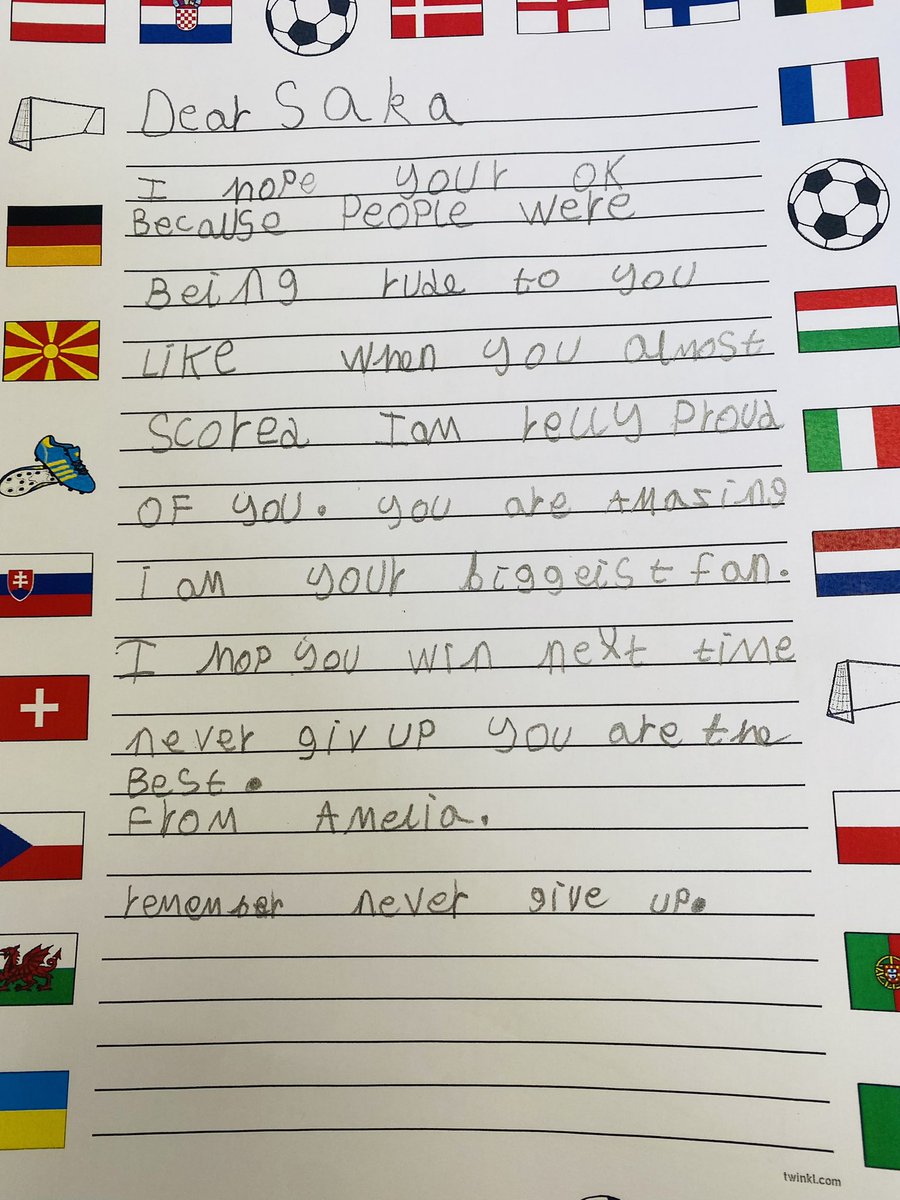 Dear Saka
I hope your OK
Because People were
Being rude to you
Like when you almost
Scored I am relly Proud
OF you. you are Amazing
i am your biggeist fan.
I hop you win next time
never giv up you are the
Best.
From Amelia.
remember never give up.
twinkl.com